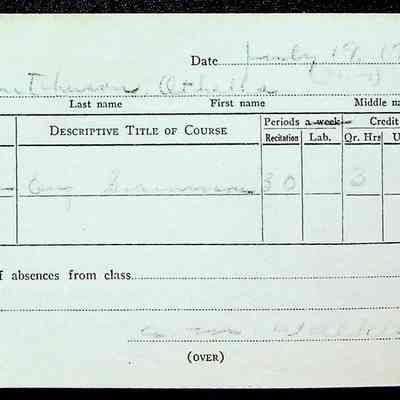 Date July 19, 19
Othella
Last name First name Middle na
DESCRIPTIVE TITLE OF COURSE Periods a week Credit
Recitation Lab. Qr. Hrs U
Eng 30 3
f absences from class
(OVER)